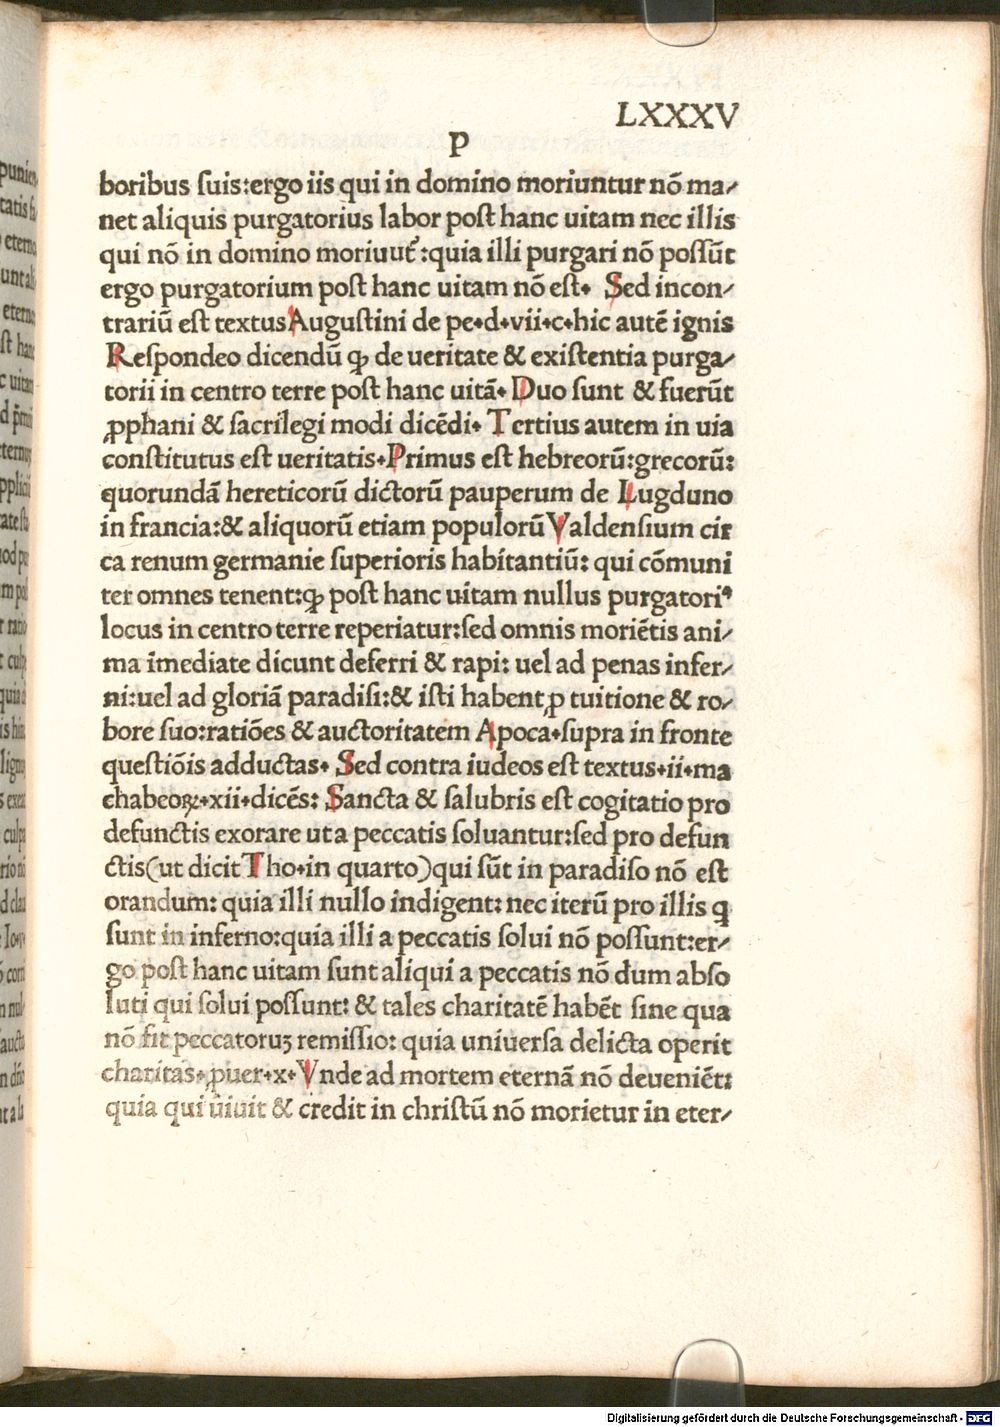 LXXXV
P
boribus suis:ergo iis qui in domino moriuntur nō ma-
net aliquis purgatorius labor post hanc uitam nec illis
qui nō in domino moriuut᷑:quia illi purgari nō possūt
ergo purgatorium post hanc uitam nō est. Sed incon-
trariū est textus Augustini de pe.d.vii.c.hic autē ignis
Respondeo dicendū ꝙ de ueritate & existentia purga-
torii in centro terre post hanc uitā. Duo sunt & fuerūt
ꝓphani & sacrilegi modi dicēdi. Tertius autem in uia
constitutus est ueritatis. Primus est hebreorū:grecorū:
quorundā hereticorū dictorū pauperum de Lugduno
in francia:& aliquorū etiam populorū Valdensium cir
ca renum germanie superioris habitantiū: qui cōmuni
ter omnes tenent:ꝙ post hanc uitam nullus purgatoriꝰ
locus in centro terre reperiatur:sed omnis moriētis ani-
ma īmediate dicunt deferri & rapi: uel ad penas infer-
ni:uel ad gloriā paradisi:& isti habent ꝓ tuitione & ro-
bore suo:ratiōes & auctoritatem Apoca.supra in fronte
questiōis adductas. Sed contra iudeos est textus.ii.ma
chabeoꝝ.xii.dicēs: Sancta & salubris est cogitatio pro
defunctis exorare ut a peccatis soluantur:sed pro defun
ctis(ut dicit Tho.in quarto)qui sūt in paradiso nō est
orandum: quia illi nullo indigent: nec iterū pro illis q̄
sunt in inferno:quia illi a peccatis solui nō possunt:er-
go post hanc uitam sunt aliqui a peccatis nō dum abso
luti qui solui possunt: & tales charitatē habēt sine qua
nō fit peccatoruꝫ remissio: quia uniuersa delicta operit
charitas.ꝓuer.x. Vnde ad mortem eternā nō deueniēt:
quia qui uiuit & credit in christū nō morietur in eter-
Digitalisierung gefördert durch die Deutsche Forschungsgemeinschaft - DFG